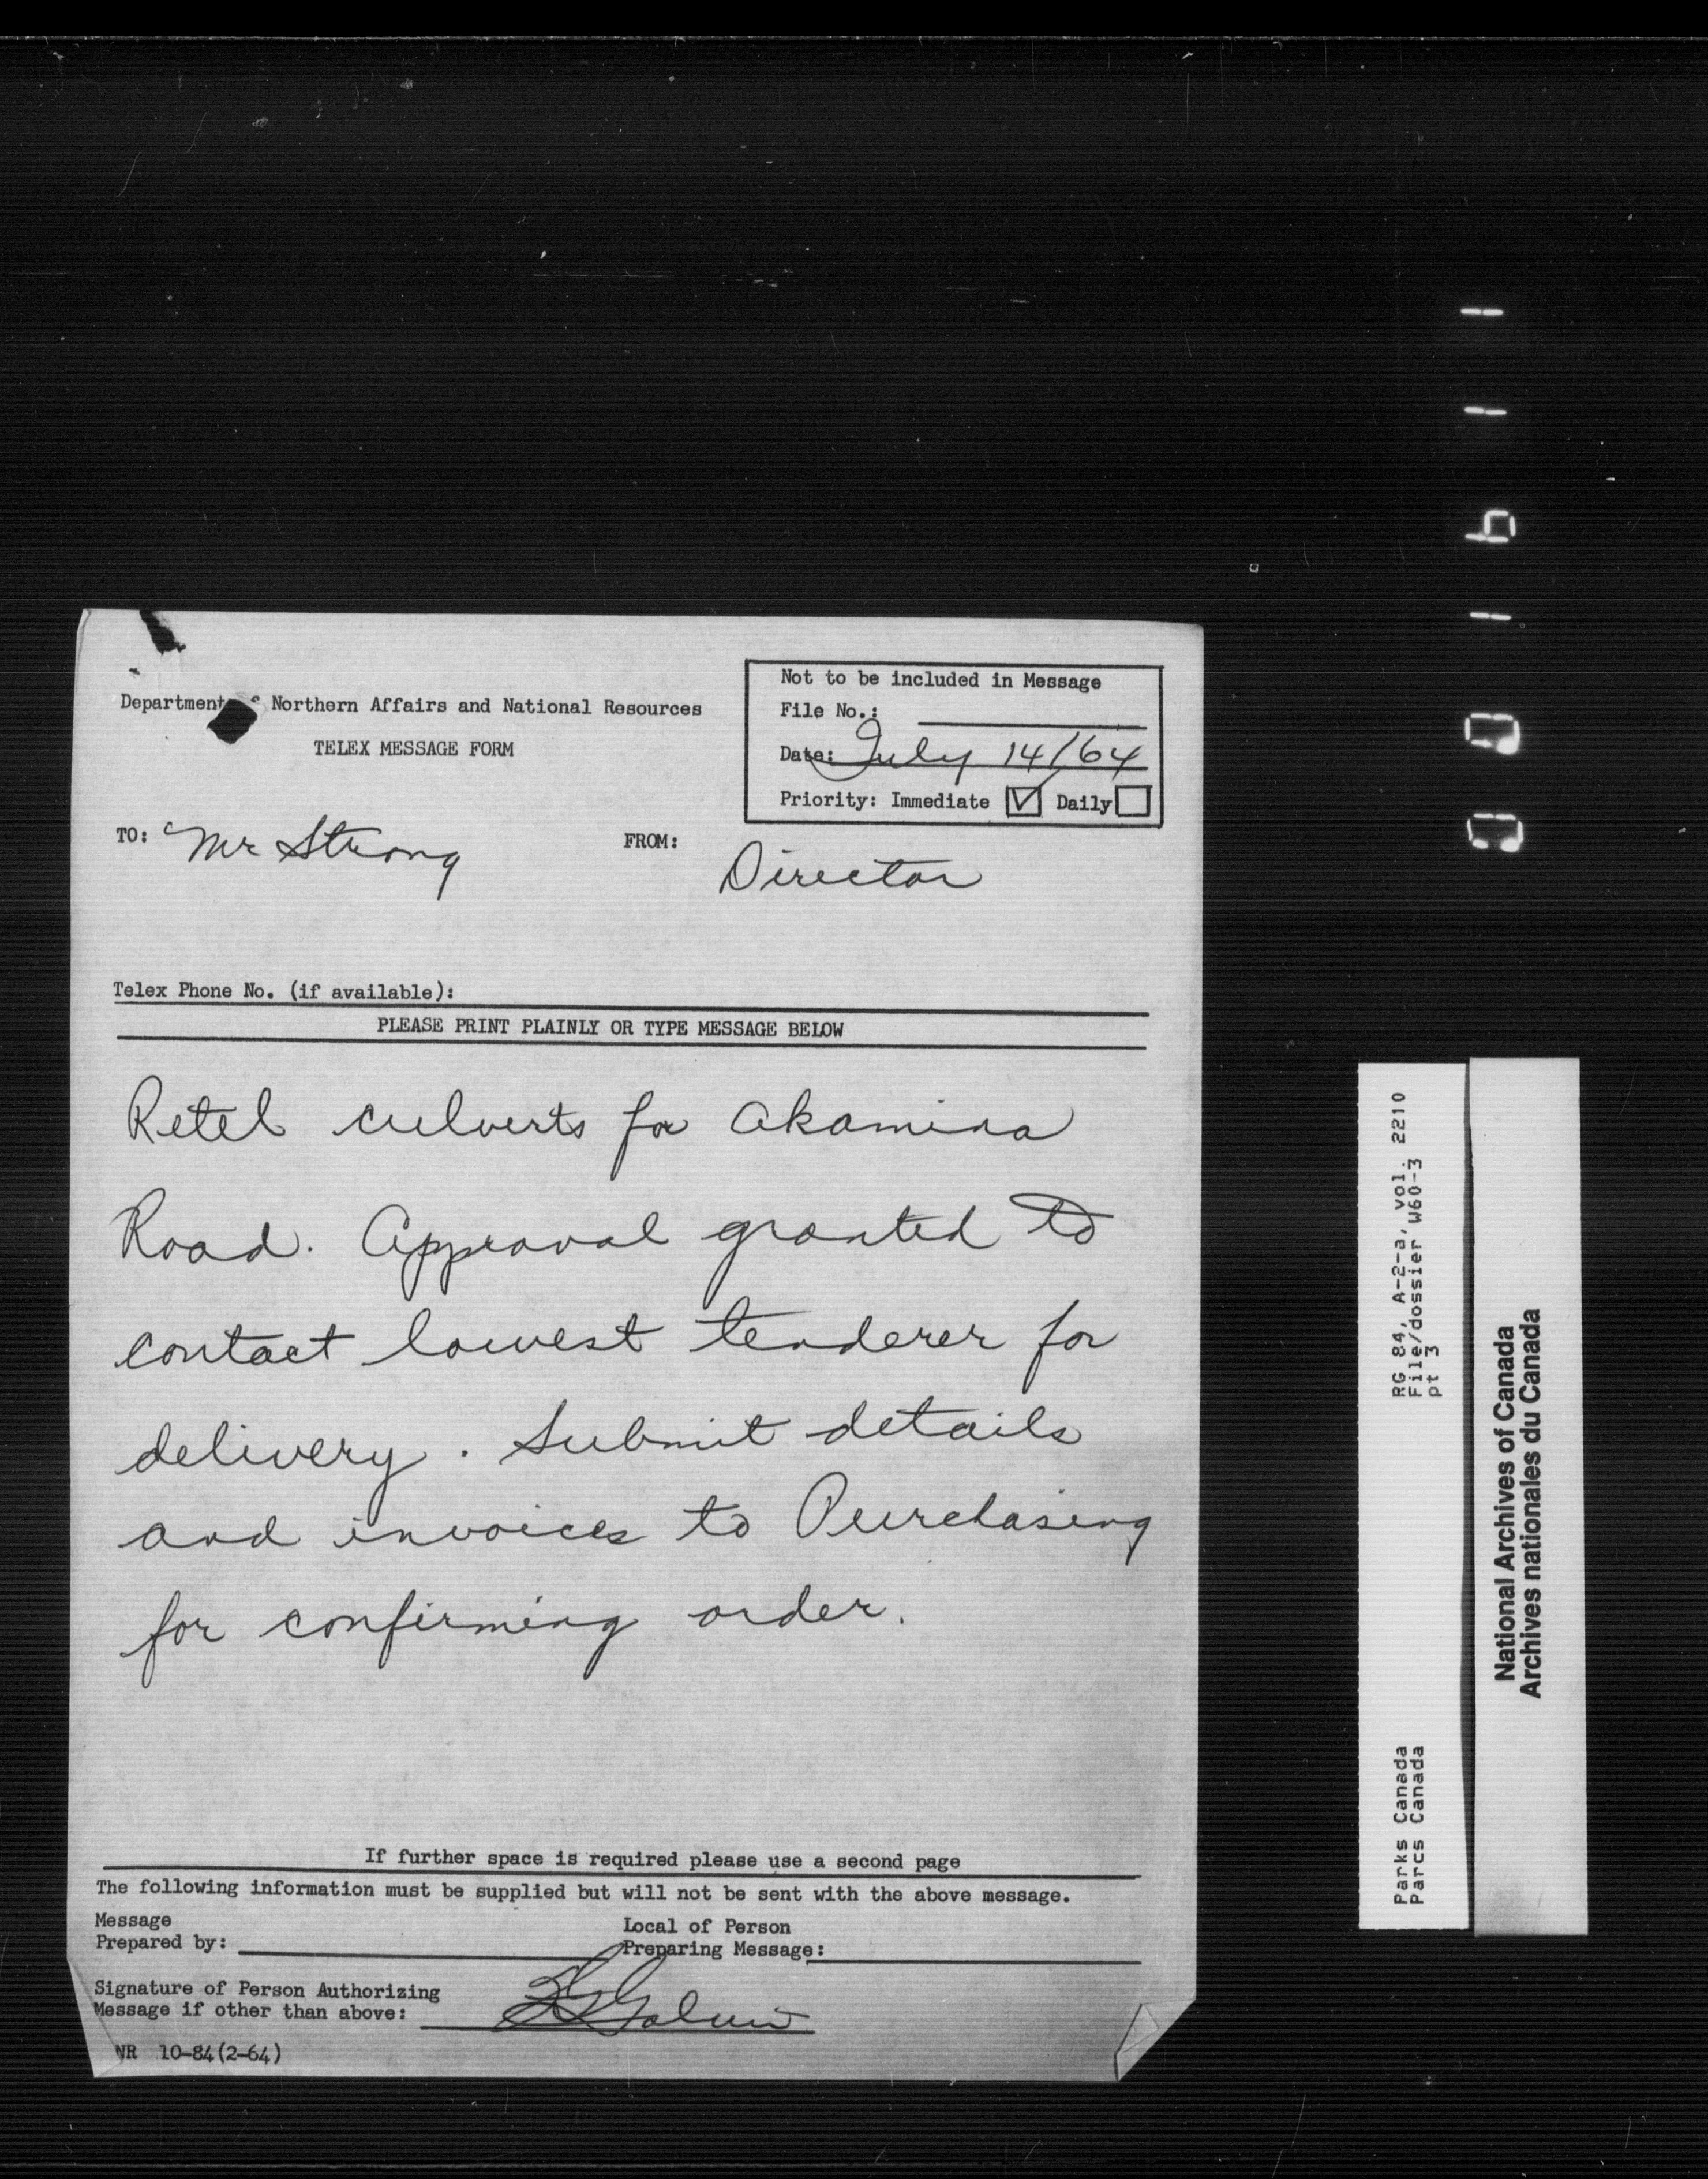 Not to be included in Message
File No.:
Date: July 14/64
Priority: Immediate Daily
Department of Northern Affairs and National Resources
TELEX MESSAGE FORM
TO: Mr Strong
FROM: Director
Telex Phone No. (if available):
PLEASE PRINT PLAINLY OR TYPE MESSAGE BELOW
Retel culverts for Akamina
Road. Approval granted to
contact lowest tenderer for
delivery. Submit details
and invoices to Purchasing
for confirming order.
If further space is required please use a second page
The following information must be supplied but will not be sent with the above message.
Message
Prepared by:
Local of Person
Preparing Message:
Signature of Person Authorizing
Message if other than above:
NR 10-84(2-64)
RG 84, A-2-a, vol. 2210
File/dossier W60-3
pt 3
Parks Canada
Parcs Canada
National Archives of Canada
Archives nationales du Canada